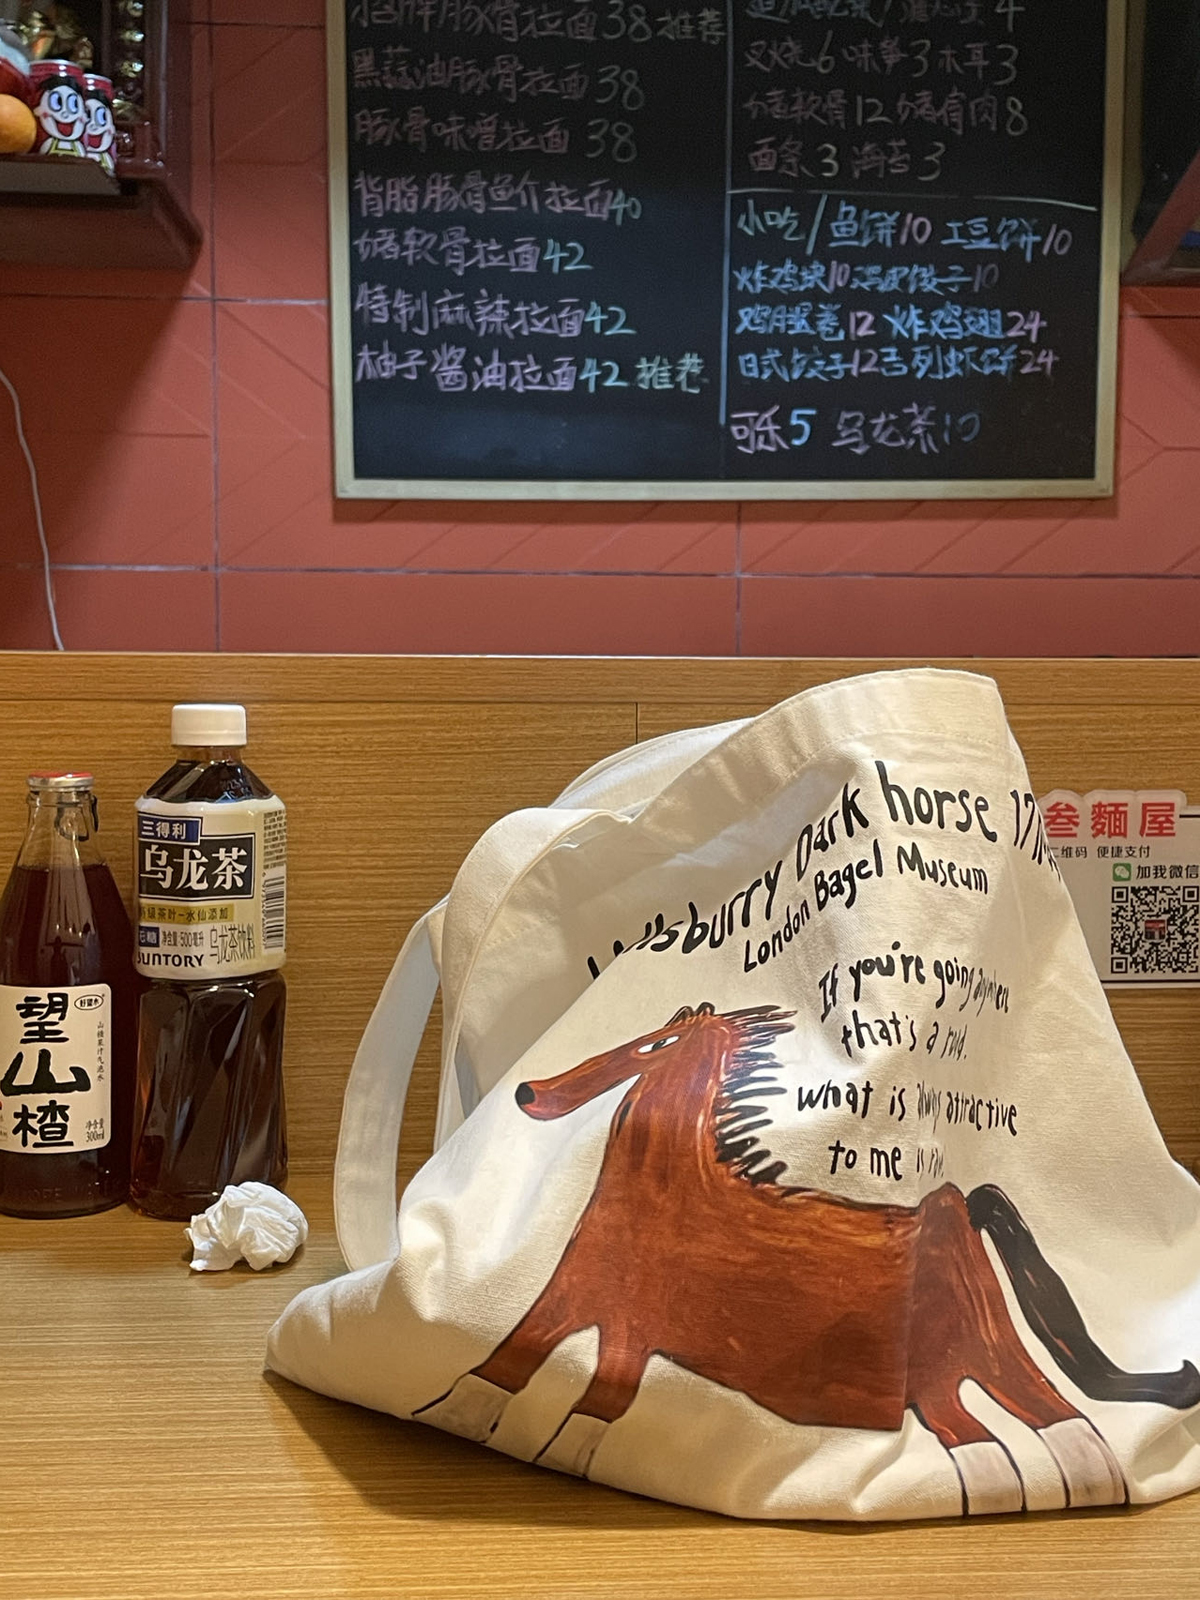 招牌豚骨拉面38推荐
黑蒜油豚骨拉面38
豚骨味噌拉面38
背脂豚骨鱼介拉面40
猪软骨拉面42
特制麻辣拉面42
柚子酱油拉面42推荐
4
叉烧6味笋3木耳3
猪软骨12猪肩肉8
面条3海苔3
小吃/鱼饼10土豆饼10
炸鸡块10鸡皮饺子10
鸡腿卷12炸鸡翅24
日式饺子12吉列虾饼24
可乐5乌龙茶10
三得利
乌龙茶
茶叶-水仙添加
净含量500毫升
乌龙茶饮料
SUNTORY
好望水
望
山
楂
山楂果汁气泡水
净含量
300ml
Dark horse 17
London Bagel Museum
If you're going anywhere
that's a road.
what is always attractive
to me is
叁麵屋
二维码 便捷支付
加我微信